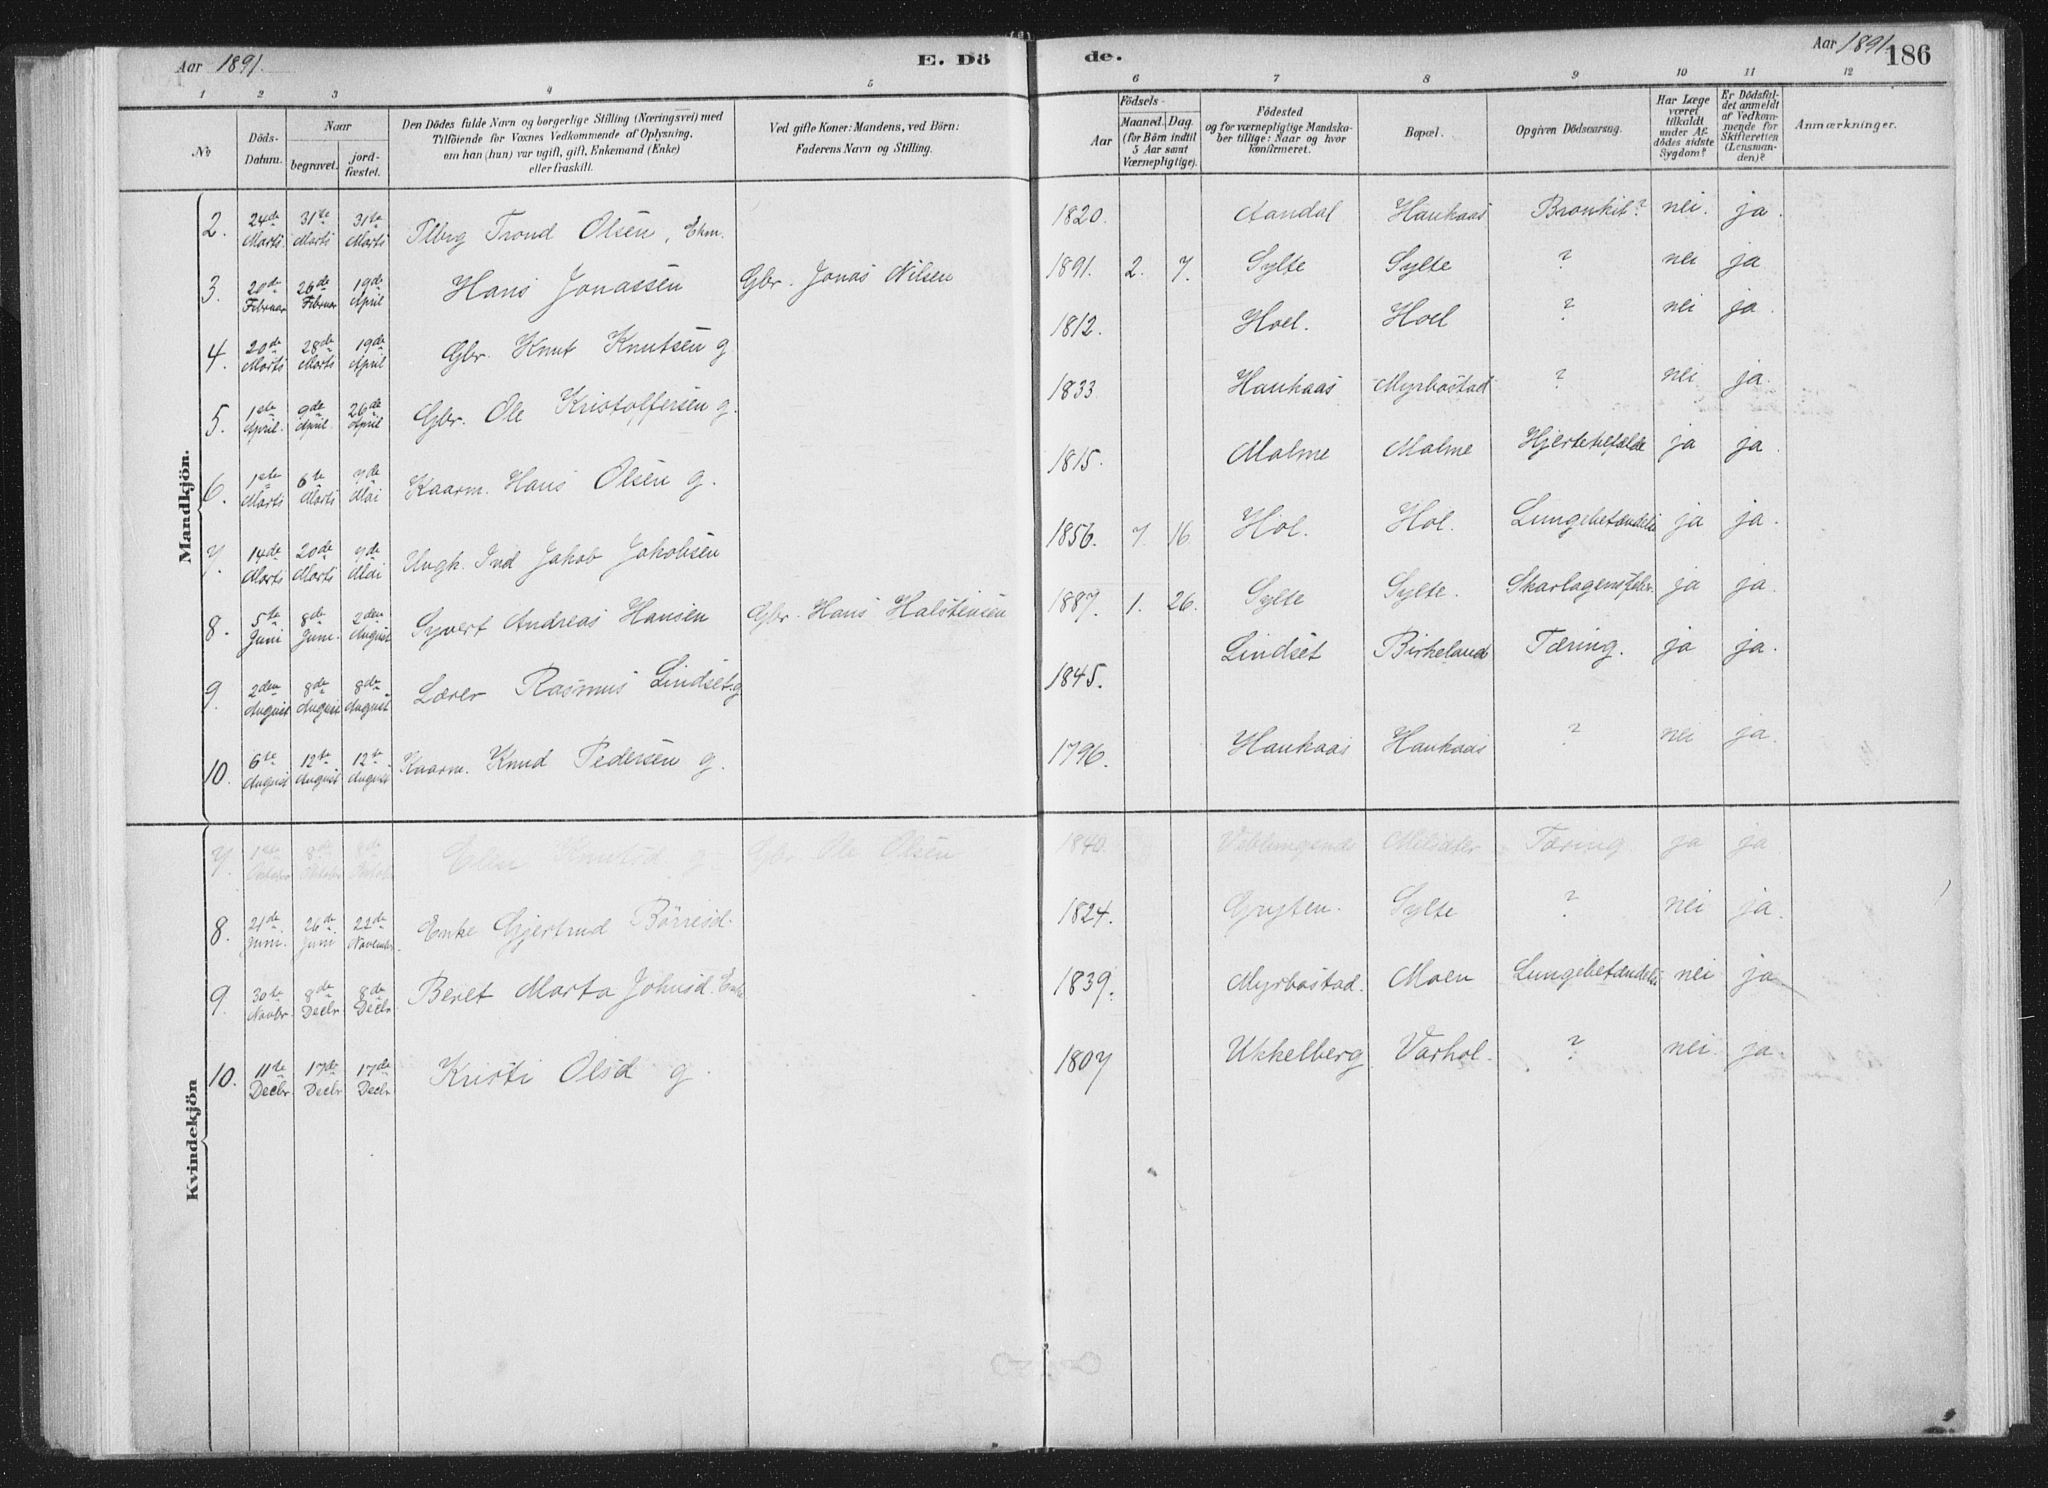 Aar 1891.
E. Dö
de.
Aar 1891.
186
1 2 3 4 5 6 7 8 9 10 11 12
No
Döds-Datum.
Naar
begravet.
jordfæstet.
Den Dödes fulde Navn og borgerlige Stilling (Næringsvei) med
Tilföiende for Voxnes Vedkommende af Oplysning,
om han (hun) var ugift, gift, Enkemand (Enke)
eller fraskilt.
Ved gifte Koner: Mandens, ved Börn:
Faderens Navn og Stilling.
Födsels-
Aar
Maaned. Dag.
(for Börn indtil
5 Aar samt
Værnepligtige).
Födested
og for værnepligtige Mandskaber tillige: Naar og hvor
konfirmeret.
Bopæl.
Opgiven Dödsaarsag.
Har Læge
været
tilkaldt
under Afdödes sidste
Sygdom?
Er Dödsfaldet anmeldt
af Vedkommende for
Skifteretten
(Lensmanden)?
Anmærkninger.
Mandkjön.
2. 24de Marts 31te Marts 31te Marts Trond Olsen, Ekm. 1820. Aandal Haukaas Bronkit? nei. ja.
3. 20de Februar 26de Februar 19de April Hans Jonassen Gbr. Jonas Nilsen 1891. 2. 7. Sylte Sylte ? nei ja
4. 20de Marts 28de Marts 19de April Gbr. Knut Knutsen g 1812. Hoel. Hoel ? nei ja.
5. 1ste April. 9de April. 26de April Gbr. Ole Kristoffersen g. 1833 Haukaas Myrbostad ? nei ja.
6. 1ste Marts 6te Marts 7de Mai Kaarm. Hans Olsen g. 1815. Malme Malme ja ja.
7. 14de Marts 20de Marts 7de Mai Ungk. Ind Jakob Jakobsen 1856. 7. 16 Hol. Hol. Lungebetændelse ja ja.
8. 5te Juni 8de Juni. 2den August Syvert Andreas Hansen Gbr. Hans Halstensen 1887. 1. 26. Sylte Sylte. Skarlagensfeber ja ja.
9. 2den August 8de August 8de August Lærer Rasmus Lindset. g 1845. Lindset Birkeland Tæring. ja ja.
10. 6te August 12te August 12te August Kaarm. Knud Pedersen g. 1796. Haukaas Haukaas ? nei ja.
Kvindekjön
7. 1ste Oktober 8de Oktober 8de Oktober Knutsd g Gbr Ole Olsen 1840. Tæring ja ja
8. 21de Juni 26de Juni 22de November Enke Gjertrud Börresd. 1824. Gryten. Sylte ? nei ja.
9. 30te Novbr. 8de Decbr 8de Decbr. Beret Marta Johnsd. Enke 1839. Myrbostad. Moen Lungebetændelse nei ja
10. 11te Decbr 17de Decbr 17de Decbr Kristi Olsd g. 1807 Ukkelberg Varhol. ? nei. ja.